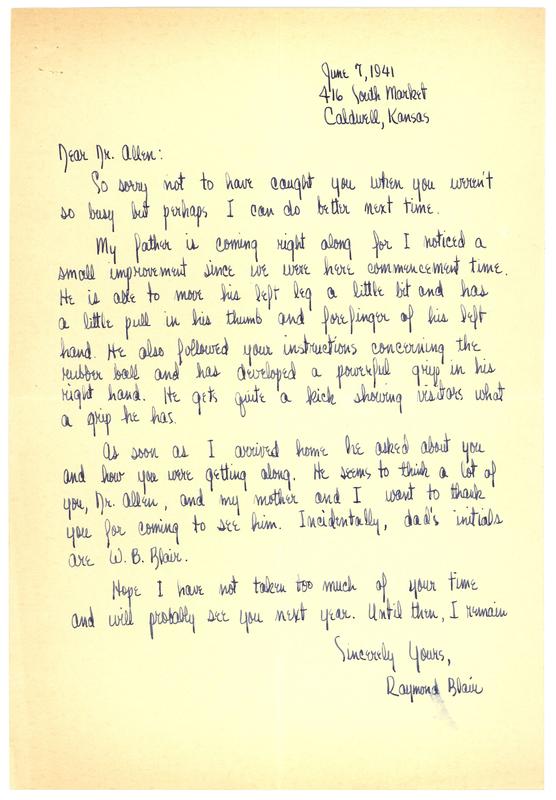 June 7, 1941
416 South Market
Caldwell, Kansas
Dear Dr. Allen:
So sorry not to have caught you when you weren't
so busy but perhaps I can do better next time.
My father is coming right along for I noticed a
small improvement since we were here commencement time.
He is able to move his left leg a little bit and has
a little pull in his thumb and forefinger of his left
hand. He also followed your instructions concerning the
rubber ball and has developed a powerful grip in his
right hand. He gets quite a kick showing visitors what
a grip he has.
As soon as I arrived home he asked about you
and how you were getting along. He seems to think a lot of
you, Dr. Allen, and my mother and I want to thank
you for coming to see him. Incidentally, dad's initials
are W. B. Blair.
Hope I have not taken too much of your time
and will probably see you next year. Until then, I remain
Sincerely Yours,
Raymond Blair